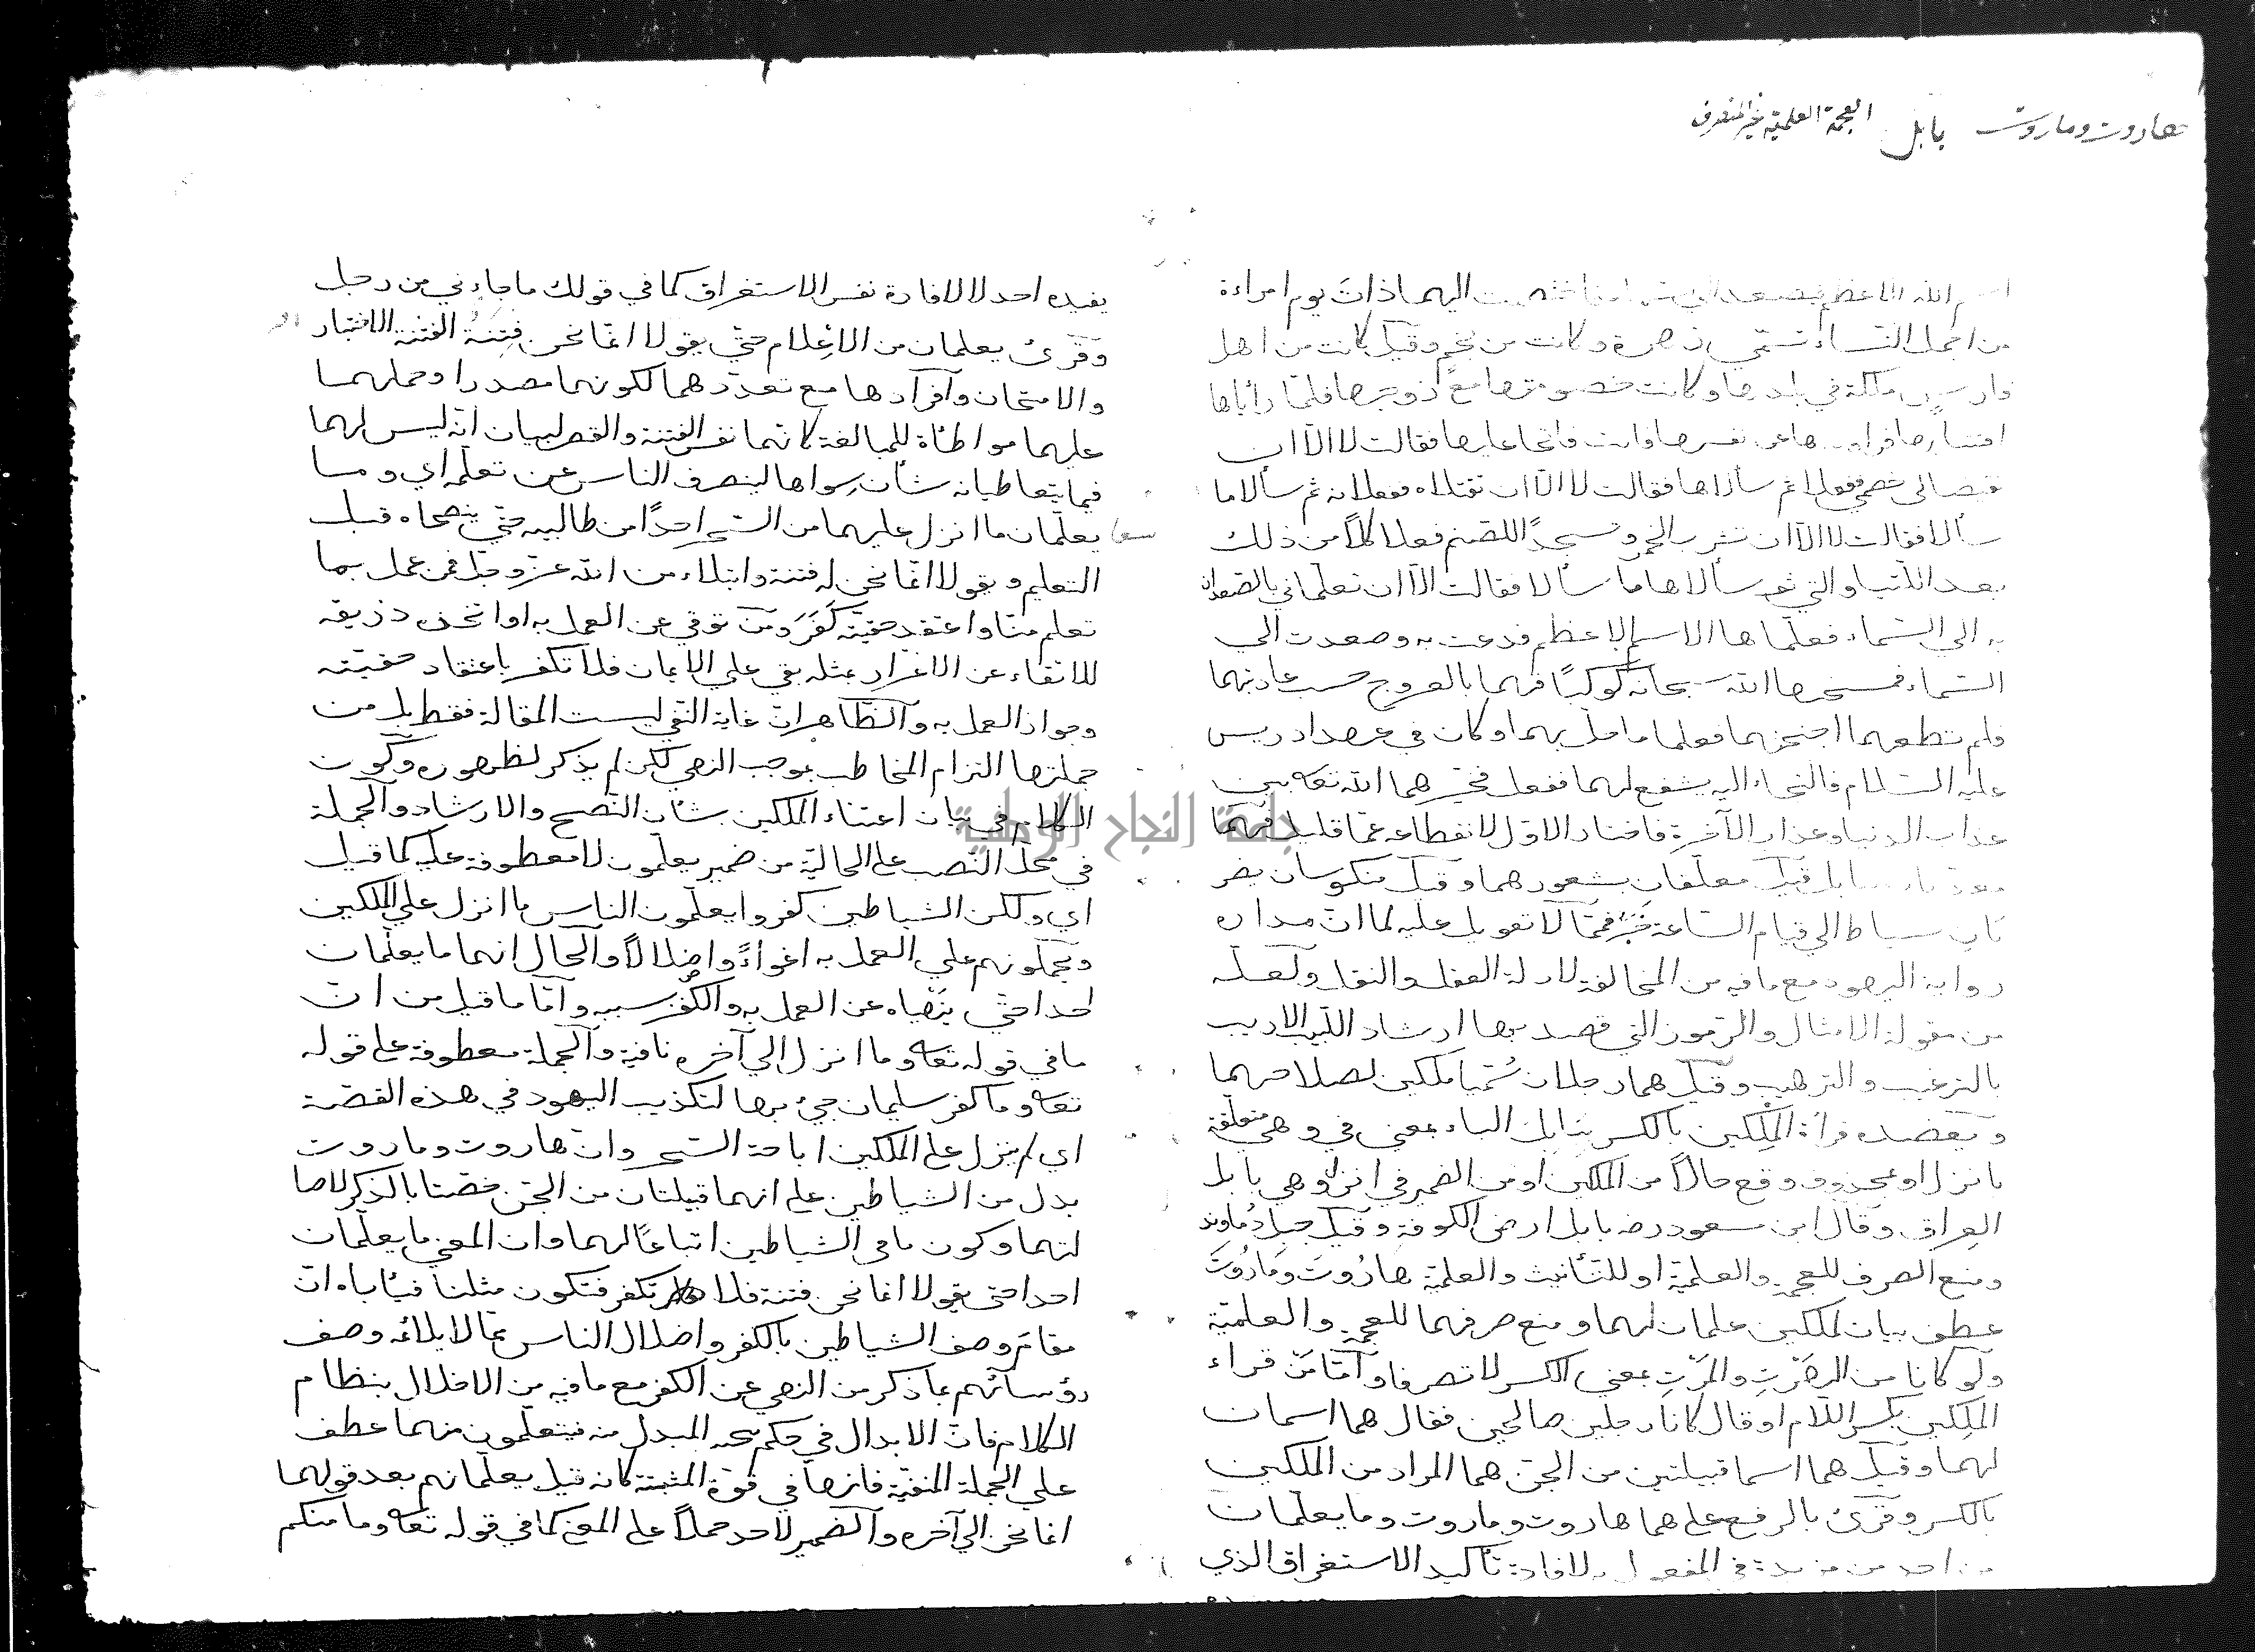 هاروت وماروت بابل العجمة العلمية غير المنصرف
اسم الله الاعظم فصعدا الى فاختصمت اليهما ذات يوم امراءة
من اجمل النساء تسمى زهرة وكانت من لخم وقيل كانت من اهل
فارس ملكة في بلدها وكانت خصومتها مع زوجها فلما راياها
افتتنا بها فراوداها عن نفسها فابت فالحا عليها فقالت لا الا ان
تقضيا لي على خصمي ففعلا ثم سألاها فقالت لا الا ان تقتلاه ففعلا ثم سألا ما
سألا فقالت لا الا ان تشربا الخمر وتسجدا للصنم فعلا كلا من ذلك
بعد اللتيا والتي ثم سألاها ما سألا فقالت الا ان تعلماني بالصعدان
به الى السماء فعلماها الاسم الاعظم فدعت به وصعدت الي
السماء فمسخها الله سبحانه كوكبا فهما بالعروج حسب عادتهما
فلم تطعهما اجنحتهما فعلما ما حل بهما وكان في عهد ادريس
عليه السلام فالتجاء اليه ليشفع لهما ففعل فخيرهما الله تعا بين
عذاب الدنيا وعذاب الآخرة فاختار الاول لانقطاعه عما قليل فهما
معذبان ببابل قيل معلقان بشعورهما وقيل منكوسان يضر
بان بسياط الى قيام الساعة فمما لا تعويل عليه لما ان مداره
رواية اليهود مع ما فيه من المخالفة لادلة العقل والنقل ولعله
من مقولة الامثال والرموز التي قصد بها ارشاد اللبيب الاريب
بالترغيب والترهيب وقيل هما رجلان سميا ملكين لصلاحهما
ويعضده قراة الملكين بالكسر ببابل الباء بمعنى في وهي متعلقة
بانزل او بمحذوف وقع حالا من الملكين او من الضمير في انزل وهي بابل
العراق وقال ابن مسعود رضه بابل ارض الكوفة وقيل جبل دماوند
ومنع الصرف للعجمة والعلمية او للتأنيث والعلمية هاروت وماروت
عطف بيان للملكين علمان لهما ومنع صرفهما للعجمة والعلمية
ولو كانا من الهرت والمرت بمعنى الكسر لانصرفا واما من قراء
الملكين بكسر اللام او قال كانا رجلين صالحين فقال هما اسمان
لهما وقيل هما اسما قبيلتين من الجن هما المراد من الملكين
بالكسر وقرئ بالرفع على هما هاروت وماروت وما يعلمان
من احد من مزيدة في المفعول به لافادة تأكيد الاستغراق الذي
يفيده احد لا لافادة نفس الاستغراق كما في قولك ما جاءني من رجل
وقرئ يعلمان من الاعلام حتي يقولا انما نحن فتنة الفتنة الاختبار
والامتحان وافرادها مع تعددهما لكونها مصدرا وحملها
عليهما مواطأة للمبالغة كانهما نفس الفتنة والقصر لبيان انه ليس لهما
فيما يتعاطيانه شأن سواها لينصرف الناس عن تعلمه اي وما
يعلمان ما انزل عليهما من السحر احدا من طالبيه حتي ينصحاه قبل
التعليم ويقولا انما نحن له فتنة وابتلاء من الله عز وجل فمن عمل بما
تعلم منا واعتقد حقيته كفر ومن توقي عن العمل به او اتخذه ذريعة
للاتقاء عن الاغترار بمثله بقي علي الايمان فلا تكفر باعتقاد حقيته
وجواز العمل به والظاهر ان غاية النفي ليست المقالة فقط بل من
جملتها التزام المخاطب بموجب النهي لكن لم يذكر لظهوره وكون
الكلام في بيان اعتناء الملكين بشأن النصح والارشاد والجملة
في محل النصب على الحالية من ضمير يعلمون لا معطوفة عليه كما قيل
اي ولكن الشياطين كفروا يعلمون الناس ما انزل علي الملكين
ويحملونهم علي العمل به اغواءً واضلالاً والحال انهما ما يعلمان
احدا حتي ينهياه عن العمل به والكفر بسببه واما ما قيل من ان
ما في قوله تعا وما انزل الي آخره نافية والجملة معطوفة على قوله
تعا وما كفر سليمان جيئ بها لتكذيب اليهود في هذه القصة
اي لم ينزل على الملكين اباحة السحر وان هاروت وماروت
بدل من الشياطين على انهما قبيلتان من الجن خصتا بالذكر لاصا
لتهما وكون باقي الشياطين اتباعا لهما وان المعنى ما يعلمان
احدا حتى يقولا انما نحن فتنة فلا تكفر فتكون مثلنا فيأباه ان
مقام وصف الشياطين بالكفر واضلال الناس مما لا يلائمه وصف
رؤسائهم بما ذكر من النهي عن الكفر مع ما فيه من الاخلال بنظام
الكلام فان الابدال في حكم تنحية المبدل منه فيتعلمون منهما عطف
علي الجملة المنفية فانها في قوة المثبتة كانه قيل يعلمانهم بعد قولهما
انما نحن الي آخره والضمير لاحد حملا على المعنى كما في قوله تعا وما منكم
جامعة النجاح الوطنية